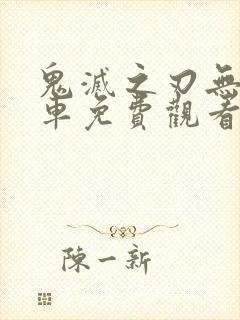 鬼滅之刃無
車免費觀看
陳一新